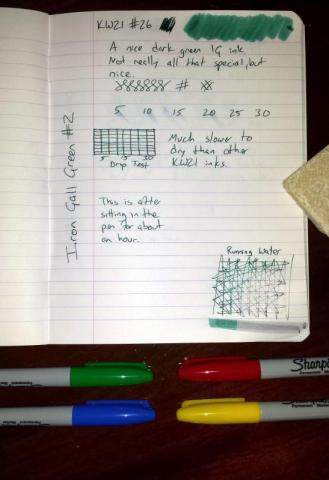 KWZI #26
A nice dark green IG ink.
Not really all that special, but
nice.
#
5 10 15 20 25 30
5 15 30
Drop Test
Much slower to
dry than other
KWZI inks.
Iron Gall Green #2
This is after
sitting in the
pen for about
an hour.
Running Water
Sharpie